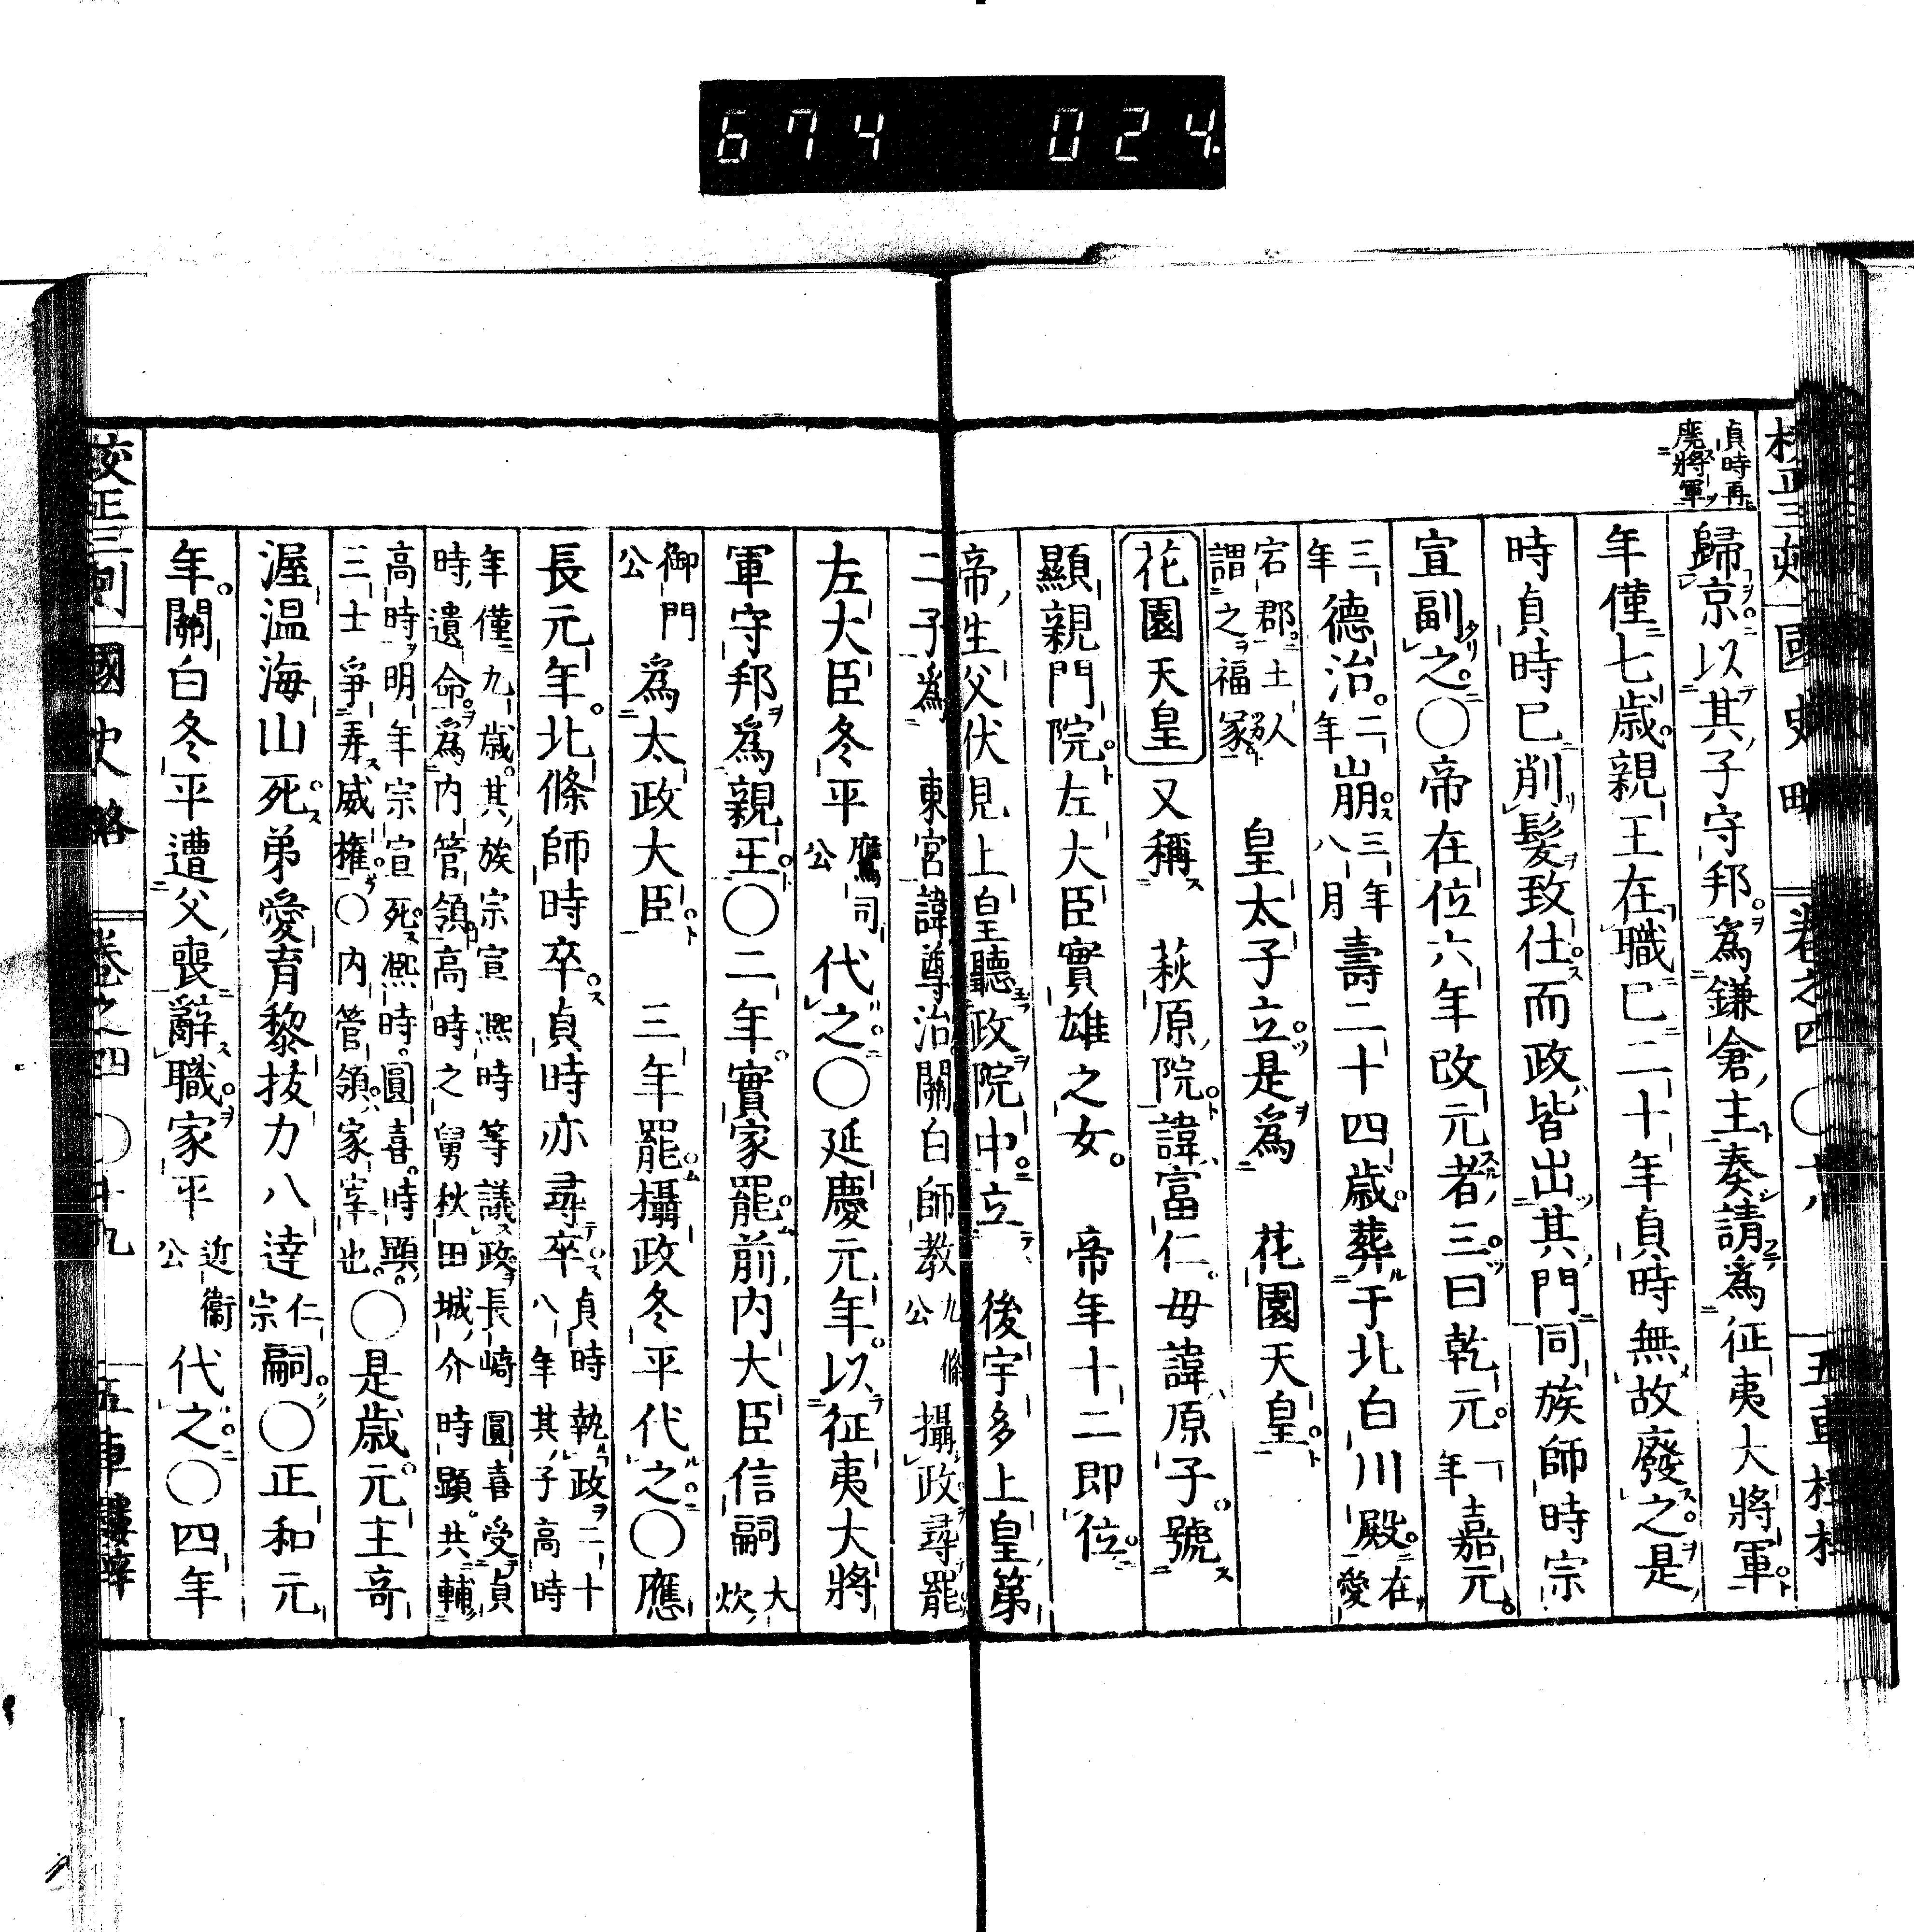 674 024.
校正三刻 國史略 卷之四
貞時再
廢將軍
歸京以其子守邦爲鎌倉主奏請爲征夷大將軍
年僅七歳親王在職已二十年貞時無故廢之是
時貞時已削髪致仕而政皆出其門同族師時宗
宣副之〇帝在位六年改元者三曰乾元一年嘉元
三年德治二年崩三年八月壽二十四歳葬于北白川殿在愛
宕郡土人謂之福冢 皇太子立是爲 花園天皇
花園天皇又稱 萩原院諱富仁母諱原子號
顯親門院左大臣實雄之女 帝年十二即位
帝生父伏見上皇聽政院中立 後宇多上皇第
二子爲 東宮諱尊治關白師教九條公攝政尋罷
左大臣冬平鷹司公代之〇延慶元年以征夷大將
軍守邦爲親王〇二年實家罷前内大臣信嗣大炊
御門公爲太政大臣 三年罷攝政冬平代之〇應
長元年北條師時卒貞時亦尋卒貞時執政二十八年其子高時
年僅九歳其族宗宣凞時等議政長崎圓喜受貞
時遺命爲内管領高時之舅秋田城介時顯共輔
高時明年宗宣死凞時圓喜時顯
三士爭弄威權〇内管領家宰也〇是歳元主奇
渥温海山死弟愛育黎抜力八達仁宗嗣〇正和元
年關白冬平遭父喪辭職家平近衞公代之〇四年
校正三刻 國史略 卷之四 〇十九 五車樓梓